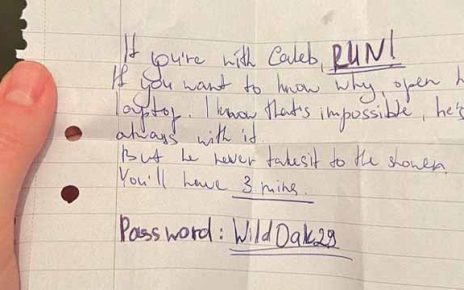 If you're with Caleb, RUN!
If you want to know why, open h
laptop. I know that's impossible, he's
always with it.
But he never takes it to the shower.
You'll have 3 mins.
Password: WildOak29